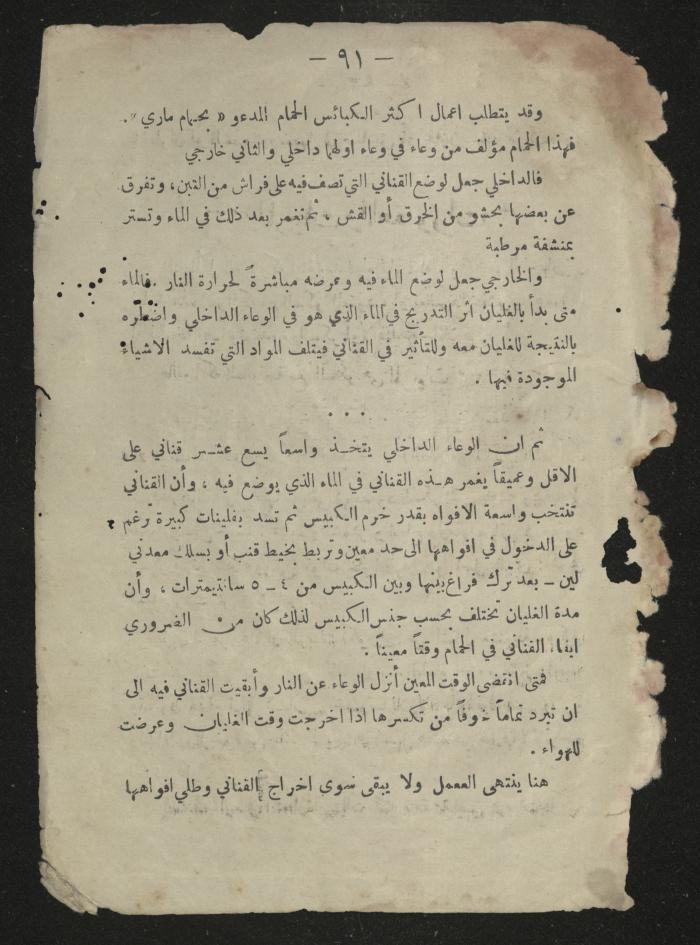 — ٩١ —
وقد يتطلب اعمال اكثر الكبائس الحمام المدعو « بحمام ماري ».
فهذا الحمام مؤلف من وعاء في وعاء اولهما داخلي والثاني خارجي
فالداخلي جعل لوضع القناني التي تصف فيه على فراش من التبن، وتفرق
عن بعضها بحشو من الخرق أو القش ، ثم تغمر بعد ذلك في الماء وتستر
بمنشفة مرطبة
والخارجي جعل لوضع الماء فيه وعرضه مباشرة لحرارة النار . فالماء
متى بدأ بالغليان اثر التدريج في الماء الذي هو في الوعاء الداخلي واضطره
بالنتيجة للغليان معه وللتأثير في القناني فيتلف المواد التي تفسد الاشياء
الموجودة فيها .
. . .
ثم ان الوعاء الداخلي يتخذ واسعاً يسع عشر قناني على
الاقل وعميقاً يغمر هذه القناني في الماء الذي يوضع فيه ، وأن القناني
تنتخب واسعة الافواه بقدر خرم الكبيس ثم تسد بفلينات كبيرة ترغم
على الدخول في افواهها الى حد معين وتربط بخيط قنب أو بسلك معدني
لين – بعد ترك فراغ بينها وبين الكبيس من ٤ – ٥ سانتيمترات ، وأن
مدة الغليان تختلف بحسب جنس الكبيس لذلك كان من الضروري
ابقاء القناني في الحمام وقتاً معيناً .
فمتى انقضى الوقت المعين أنزل الوعاء عن النار وأبقيت القناني فيه الى
ان تبرد تماماً خوفاً من تكسرها اذا اخرجت وقت الغليان وعرضت
للهواء .
هنا ينتهى العمل ولا يبقى سوى اخراج القناني وطلي افواهها